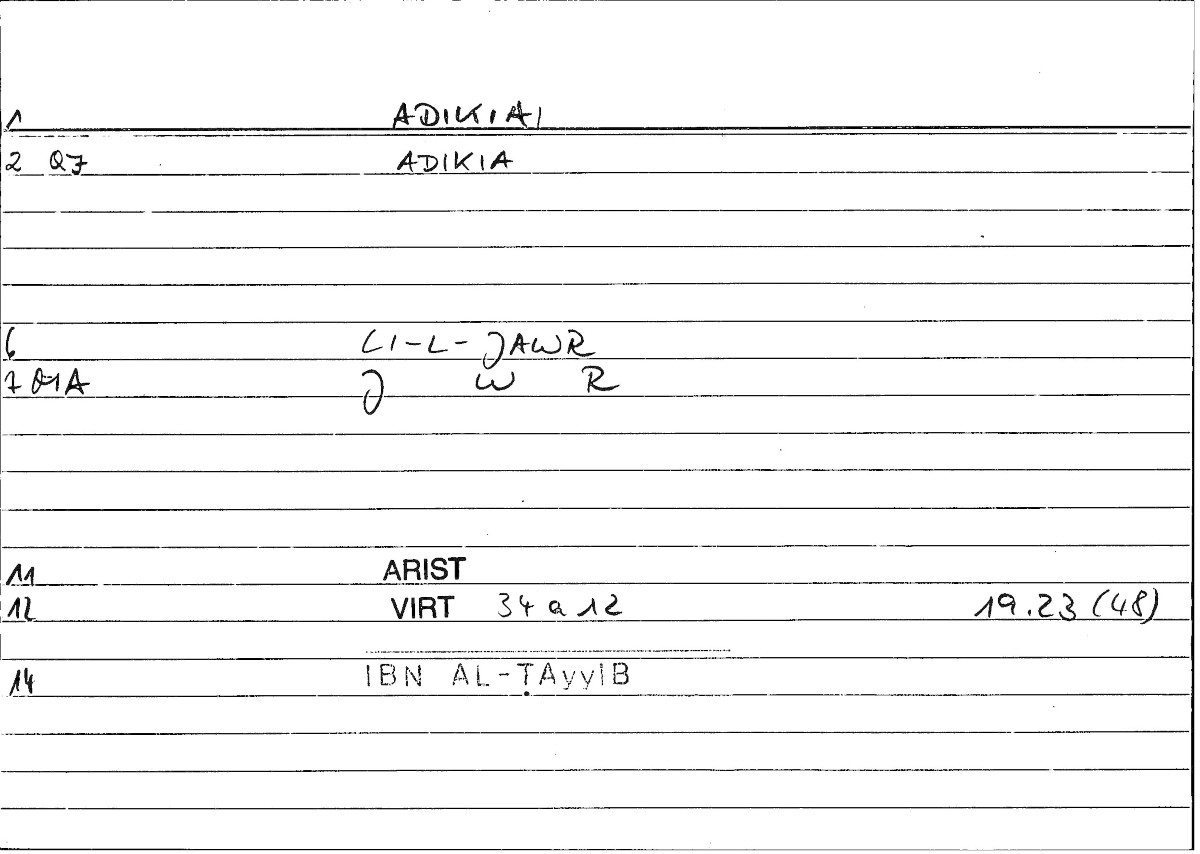 1 ADIKIAI
2 Q7 ADIKIA
6 LI-L-JAWR
7 01A J W R
11 ARIST
12 VIRT 34 a 12 19.23 (48)
14 IBN AL-ṬAyyIB